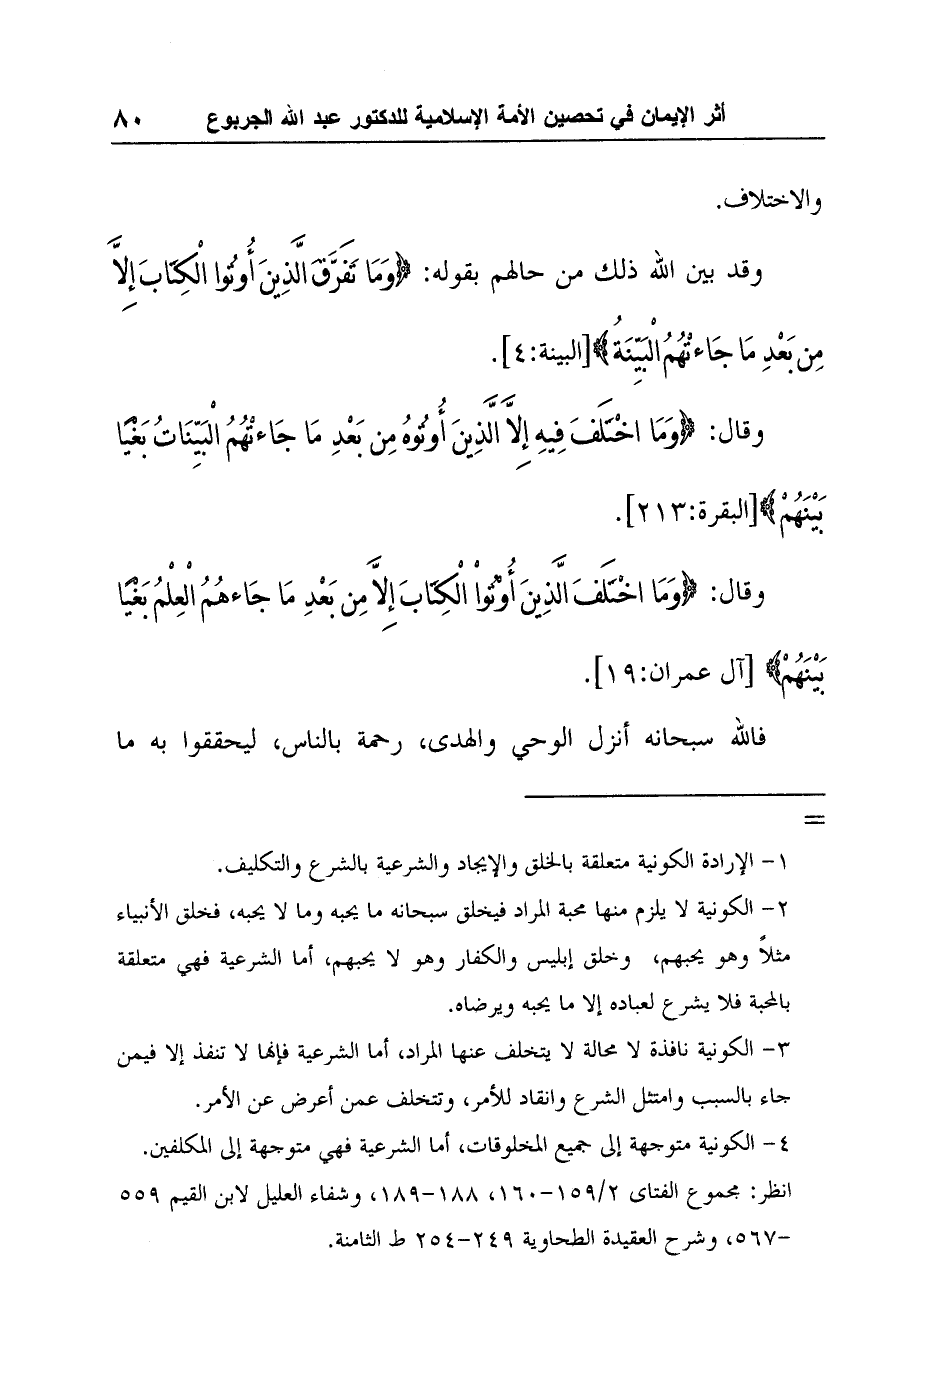 أثر الإيمان في تحصين الأمة الإسلامية للدكتور عبد الله الجربوع ٨٠
والاختلاف.
وقد بين الله ذلك من حالهم بقوله: ﴿وَمَا تَفَرَّقَ الَّذِينَ أُوتُوا الْكِتَابَ إِلاَّ
مِن بَعْدِ مَا جَاءتْهُمُ الْبَيِّنَةُ﴾[البينة:٤].
وقال: ﴿وَمَا اخْتَلَفَ فِيهِ إِلاَّ الَّذِينَ أُوتُوهُ مِن بَعْدِ مَا جَاءتْهُمُ الْبَيِّنَاتُ بَغْيًا
بَيْنَهُمْ﴾[البقرة:٢١٣].
وقال: ﴿وَمَا اخْتَلَفَ الَّذِينَ أُوْتُواْ الْكِتَابَ إِلاَّ مِن بَعْدِ مَا جَاءهُمُ الْعِلْمُ بَغْيًا
بَيْنَهُمْ﴾ [آل عمران:١٩].
فالله سبحانه أنزل الوحي والهدى، رحمة بالناس، ليحققوا به ما
=
١- الإرادة الكونية متعلقة بالخلق والإيجاد والشرعية بالشرع والتكليف.
٢- الكونية لا يلزم منها محبة المراد فيخلق سبحانه ما يحبه وما لا يحبه، فخلق الأنبياء
مثلاً وهو يحبهم، وخلق إبليس والكفار وهو لا يحبهم، أما الشرعية فهي متعلقة
بالمحبة فلا يشرع لعباده إلا ما يحبه ويرضاه.
٣- الكونية نافذة لا محالة لا يتخلف عنها المراد، أما الشرعية فإنها لا تنفذ إلا فيمن
جاء بالسبب وامتثل الشرع وانقاد للأمر، وتتخلف عمن أعرض عن الأمر.
٤- الكونية متوجهة إلى جميع المخلوقات، أما الشرعية فهي متوجهة إلى المكلفين.
انظر: مجموع الفتاى ١٥٩/٢-١٦٠، ١٨٨-١٨٩، وشفاء العليل لابن القيم ٥٥٩
-٥٦٧، وشرح العقيدة الطحاوية ٢٤٩-٢٥٤ ط الثامنة.